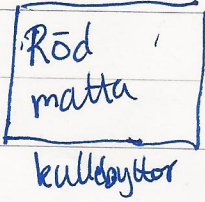 Röd
matta
kullerbyttor